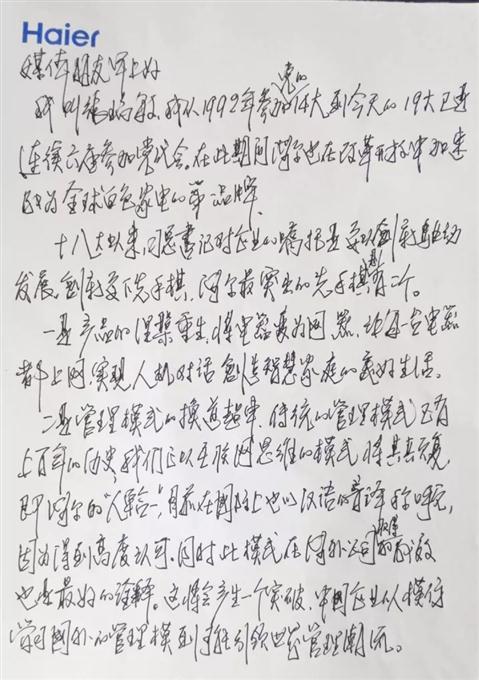 Haier
媒体朋友早上好
我叫张瑞敏，我从1992年参加党的14大到今天的19大已是
连续六届参加党代会。在此期间海尔也在改革开放中加速
成为全球白色家电的第一品牌。
十八大以来，总书记对企业的嘱托是要以创新驱动
发展，创新要下先手棋，海尔最突出的先手棋是有二个。
一是产品的涅槃重生，将电器变为网器，让每一台电器
都上网，实现人机对话，创造智慧家庭的美好生活。
二是管理模式的换道超车，传统的管理模式已有
上百年的历史，我们正以互联网思维的模式将其颠覆，
即海尔的"人单合一"，目前在国际上也以汉语的音译称呼它，
因为得到高度认可。同时此模式在海外公司的成效
也是最好的诠释。这将会产生一个突破，中国企业从模仿
学习国外的管理模式到引领世界管理潮流。